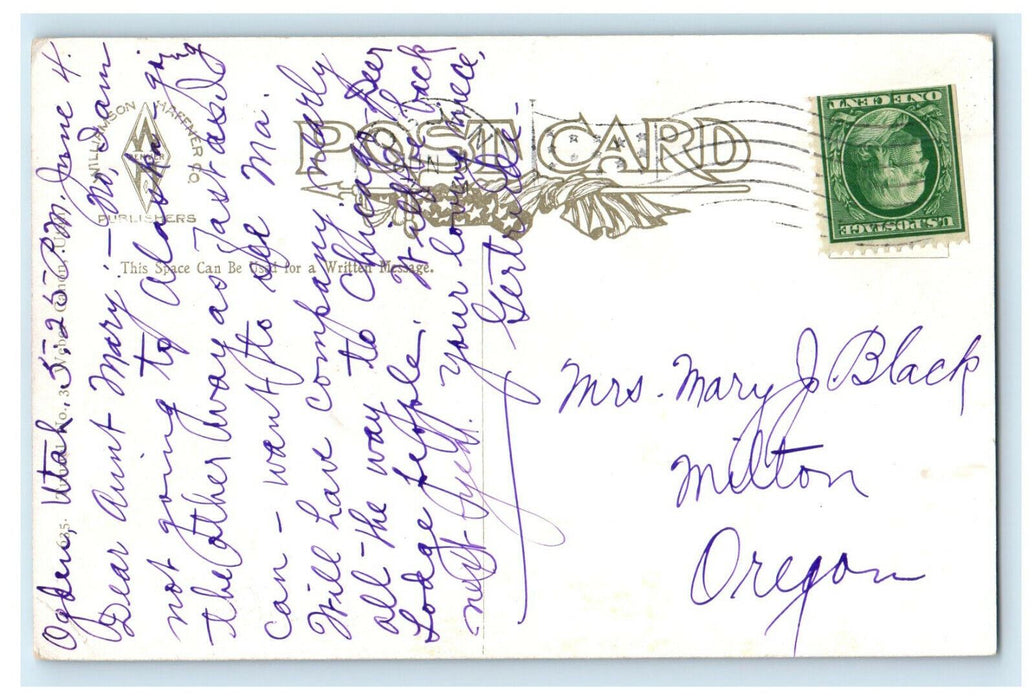 Ogden, Utah, 5-25 P.M. June 4.
Dear Aunt Mary:— No, I am
not going to Alaska - going
the other way as fast as I
can - want to see Ma.
Will have company nearly
all the way to Chicago. Deer
Lodge people. I'll be back
next your loving niece,
Gertrude-
POST CARD
WILLIAMSON HAFFNER CO.
DENVER
PUBLISHERS
This Space Can Be Used for a Written Message.
ONE CENT
U.S. POSTAGE
Mrs. Mary J. Black
Milton
Oregon